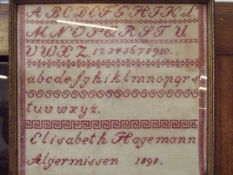 A B C D E F G H I K L
M N O P Q R S T U
V W X Z 1234567890.
abcdefghiklmnopqrs
tuvwxyz.
Elisabeth Hagemann
Algermissen 1890.